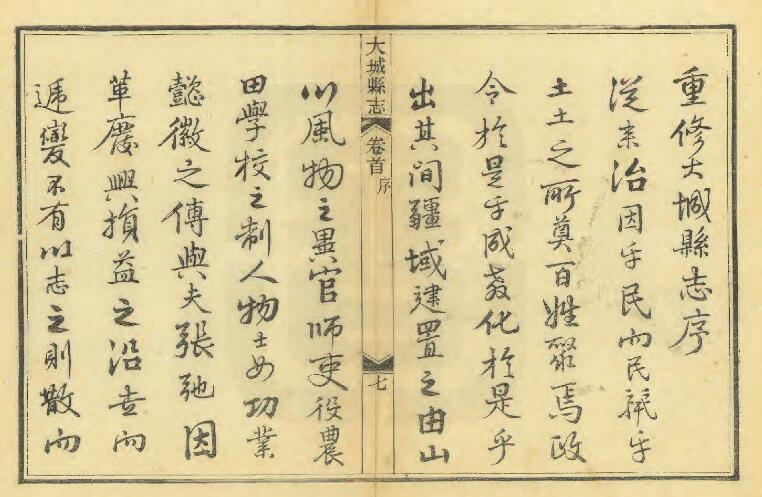 重修大城縣志序
從來治因乎民而民親乎
土土之所奠百姓聚焉政
令於是乎成教化於是乎
出其間疆域建置之由山
大城縣志 卷首 序 七
川風物之異官師吏役農
田學校之制人物士女功業
懿徽之傳與夫張弛因
革廢興損益之沿
遞變不有以志之則散而